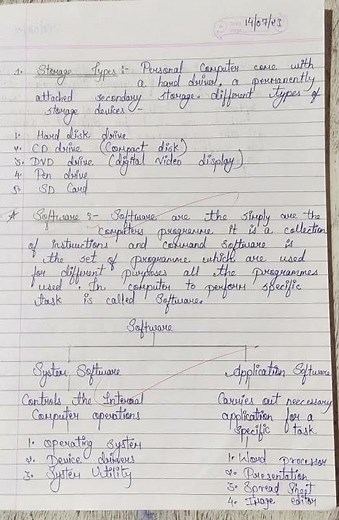 14/07/23
1. Storage Types :- Personal Computer come with
a hard driver, a permanently
attached secondary storage. different types of
storage devices
1. Hard disk drive
2. CD drive (Compact disk)
3. DVD drive (digital video display)
4. Pen drive
5. SD Card
Software :- Software are the simply are the
computers programme. It is a collection
of instructions and command Software is
the set of programme which are used
for different purposes all the programmes
used. In computer to perform specific
task is called Software.
Software
System Software Application Software
Controls the Internal Carries out necessary
Computer operations application for a
specific task.
1. Operating System 1. Word Processor
2. Device drivers 2. Presentation
3. System Utility 3. Spread Sheet
4. Image Editor